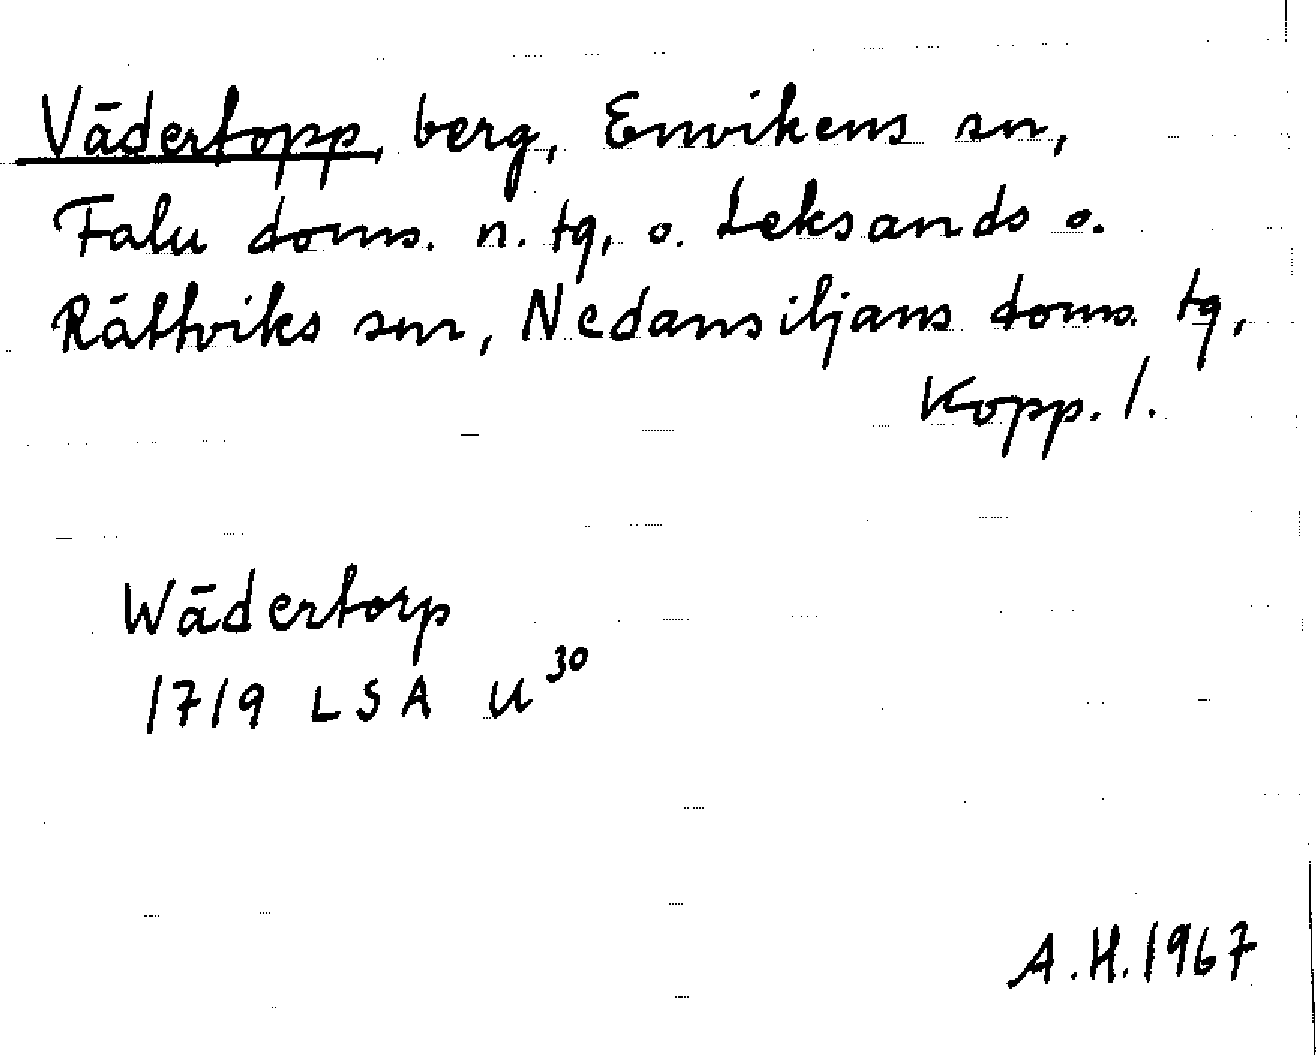 Vädertopp, berg, Envikens sn,
Falu doms. n. tg, o. Leksands o.
Rättviks snr, Nedansiljans doms. tg,
Kopp. l.
Wädertorp
1719 LSA U³⁰
A.H. 1967